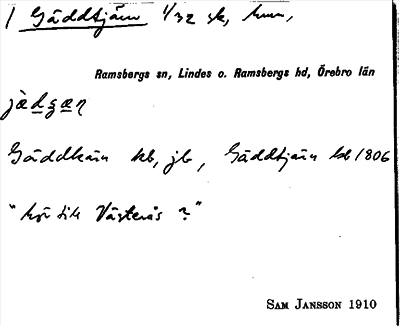 1 Gäddtjärn 1/32 sk, hmn,
Ramsbergs sn, Lindes o. Ramsbergs hd, Örebro län
Gäddkärn kb, jb, Gäddtjärn lb 1806
"hör till Västerås ?"
SAM JANSSON 1910